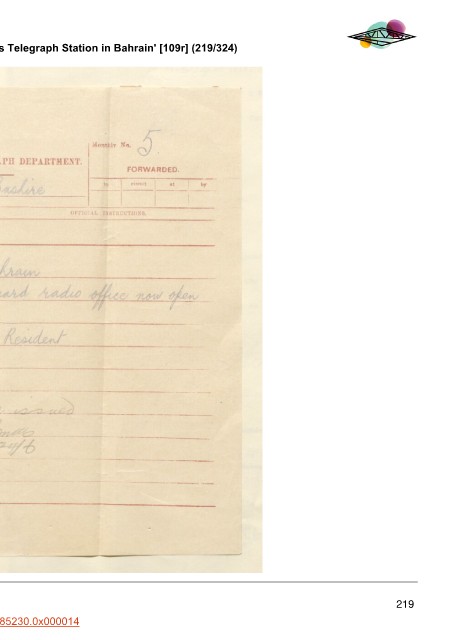 s Telegraph Station in Bahrain' [109r] (219/324)
Message No. 5
APH DEPARTMENT.
FORWARDED.
to at by
OFFICIAL INSTRUCTIONS.
hrain
ard radio office now open
Resident
issued
219
85230.0x000014